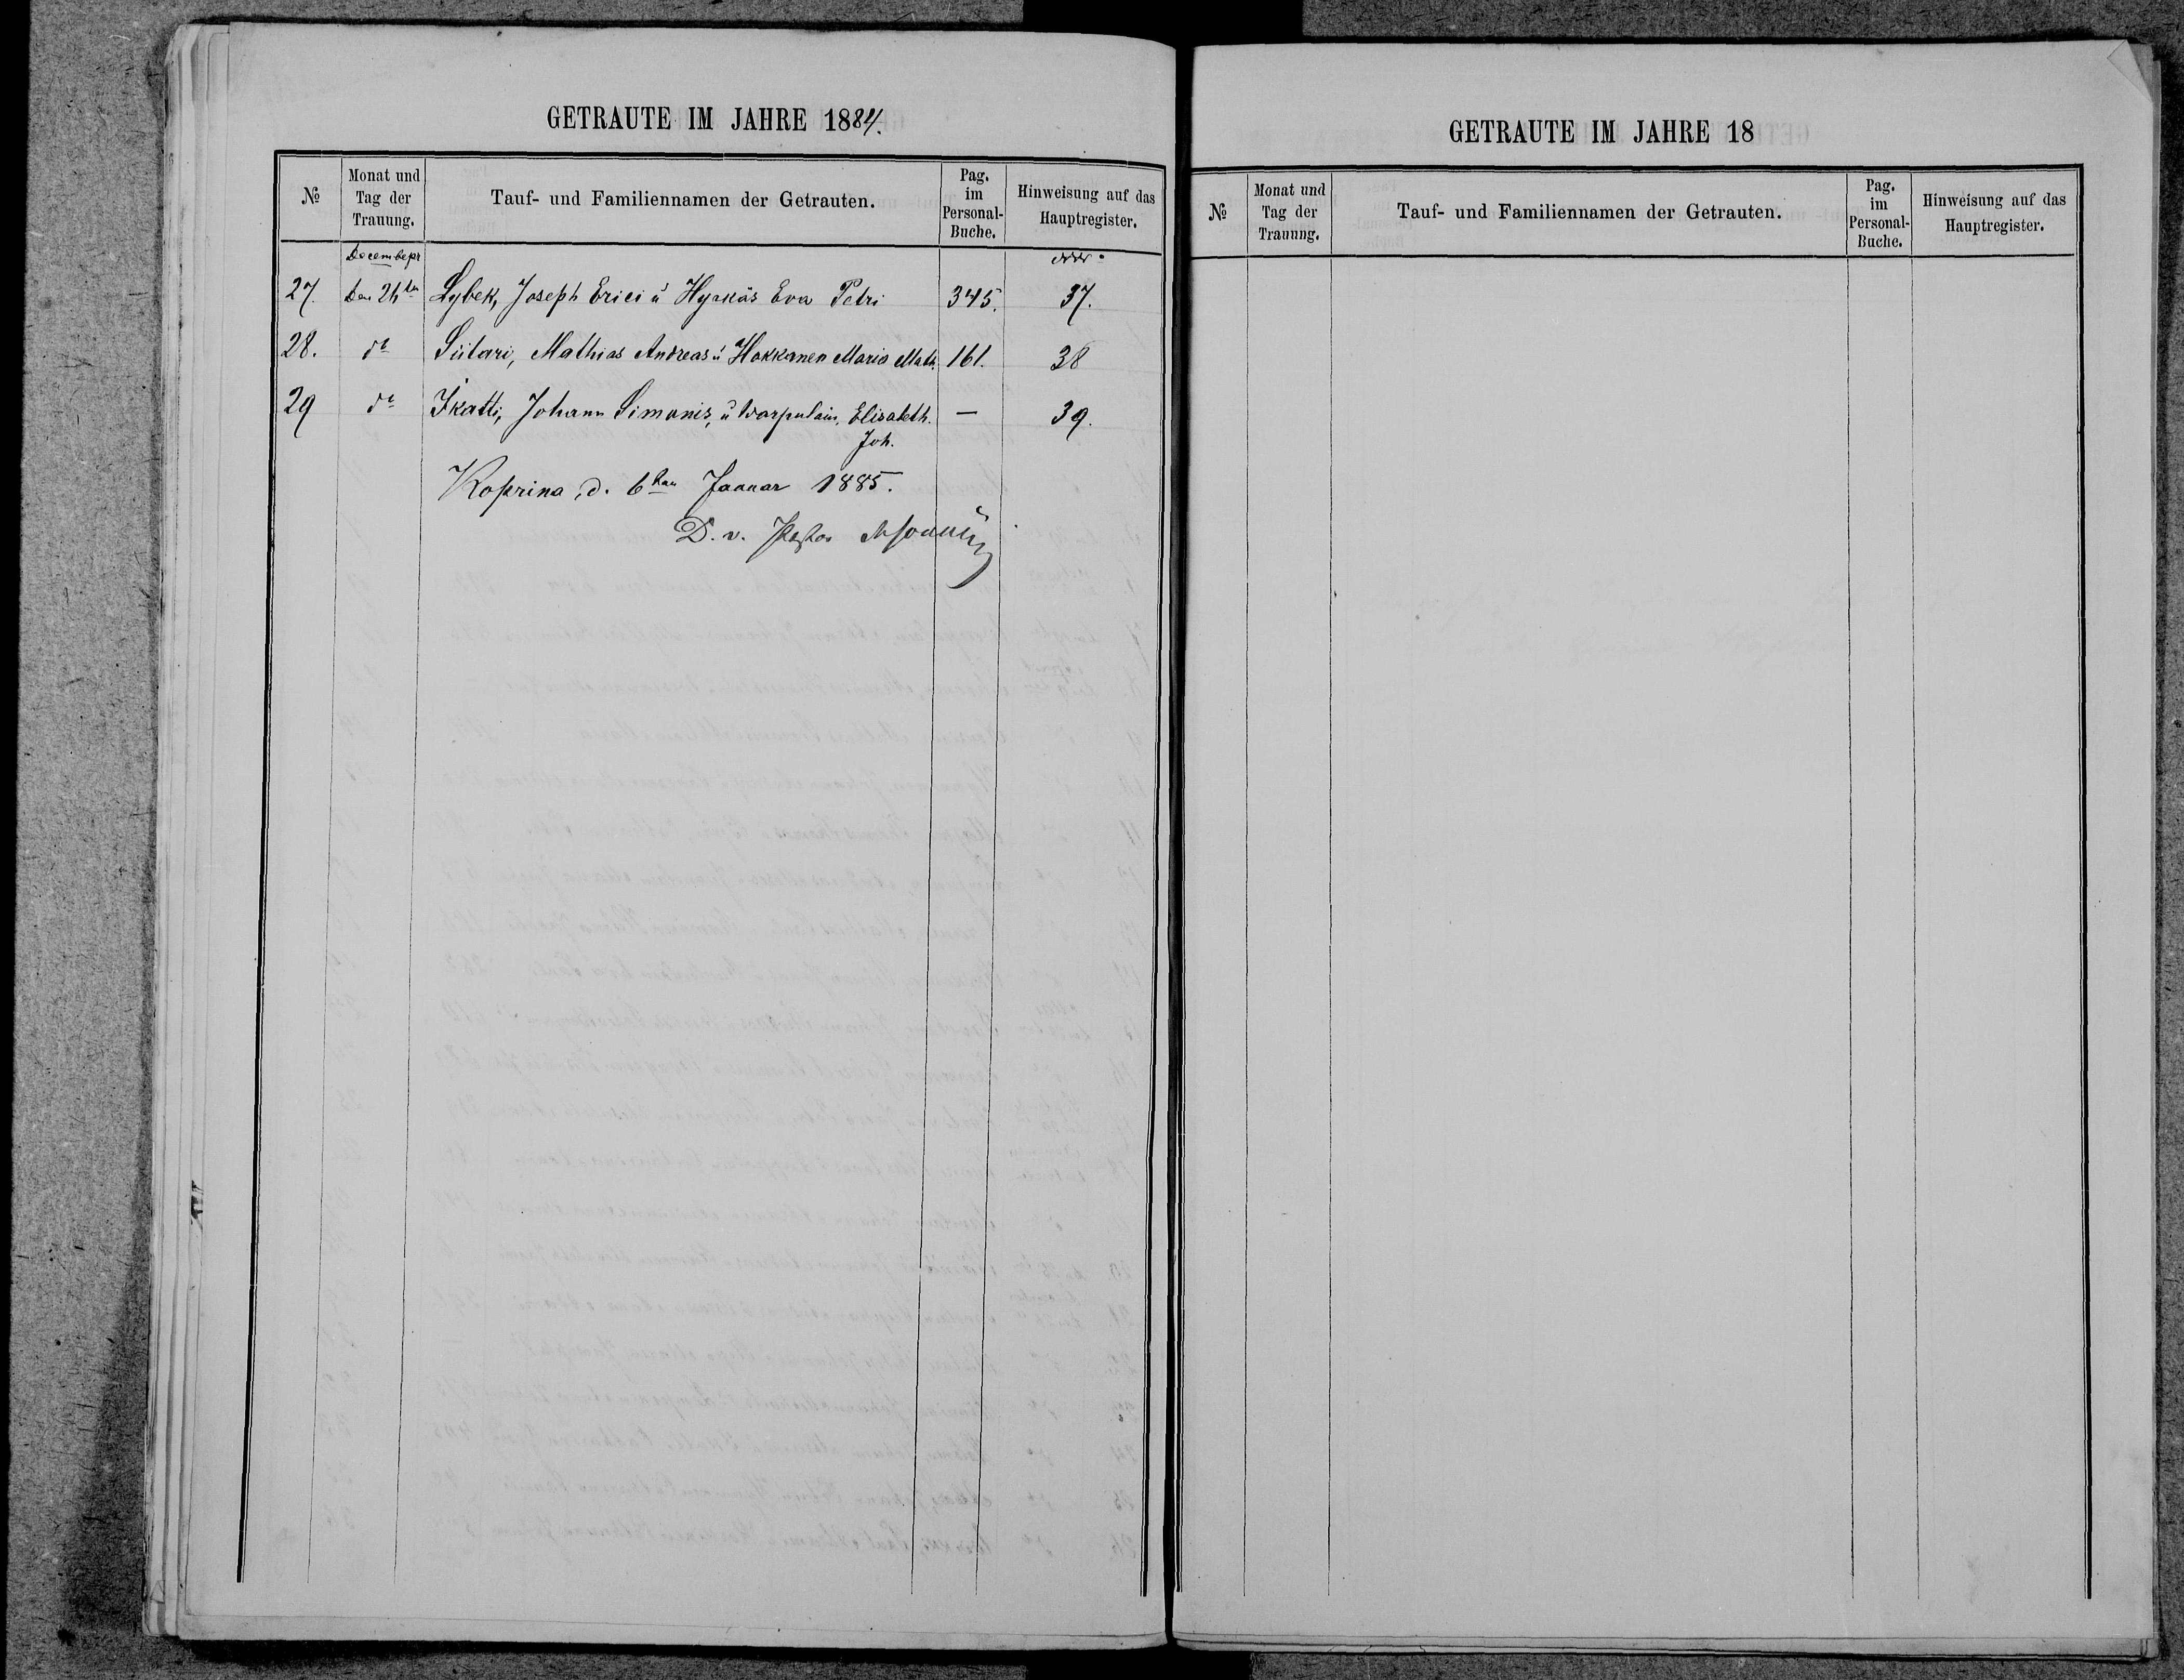 GETRAUTE IM JAHRE 1884.
№ Monat und Tag der Trauung. Tauf- und Familiennamen der Getrauten. Pag. im Personal-Buche. Hinweisung auf das Hauptregister.
Decembepr
27. den Lybek, Joseph Erici u Hyrkäs Eva Petri 345. 37.
28. do Siitari, Mathias Andreas u Hokkanen Maria Math. 161. 38
29 do Ikatti, Johann Simonis, u Warpulain, Elisabeth. — 39.
Joh.
Koprina, d. 6ten Januar 1885.
D. v. Pastor
GETRAUTE IM JAHRE 18
№ Monat und Tag der Trauung. Tauf- und Familiennamen der Getrauten. Pag. im Personal-Buche. Hinweisung auf das Hauptregister.